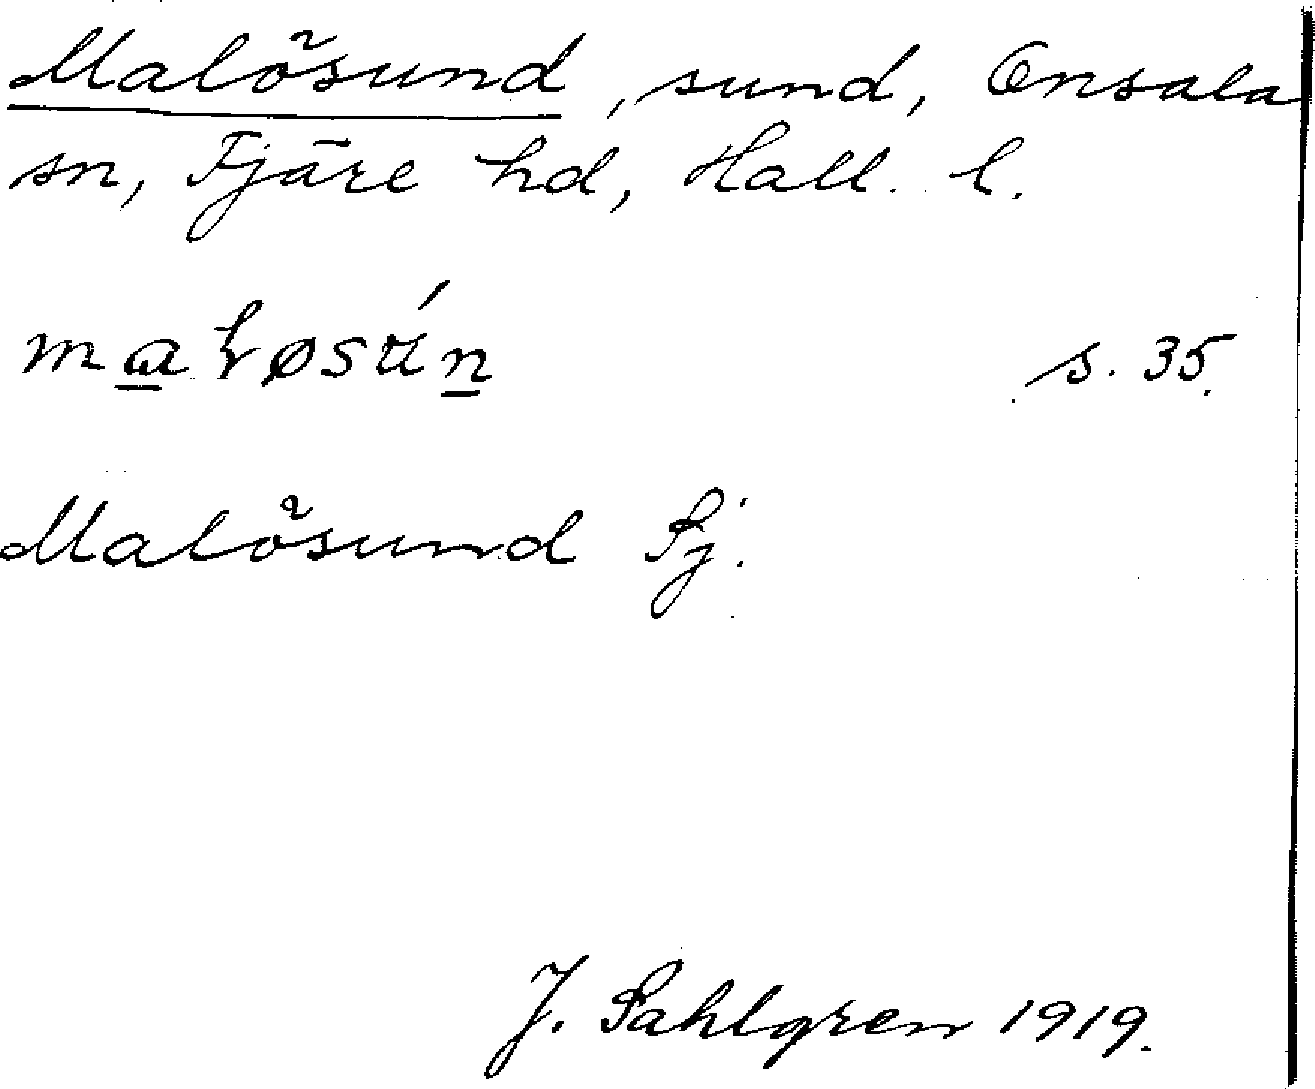 Malösund, sund, Onsala
sn, Fjäre hd, Hall. l.
małøsún s. 35.
Malösund Fj.
J. Sahlgren 1919.